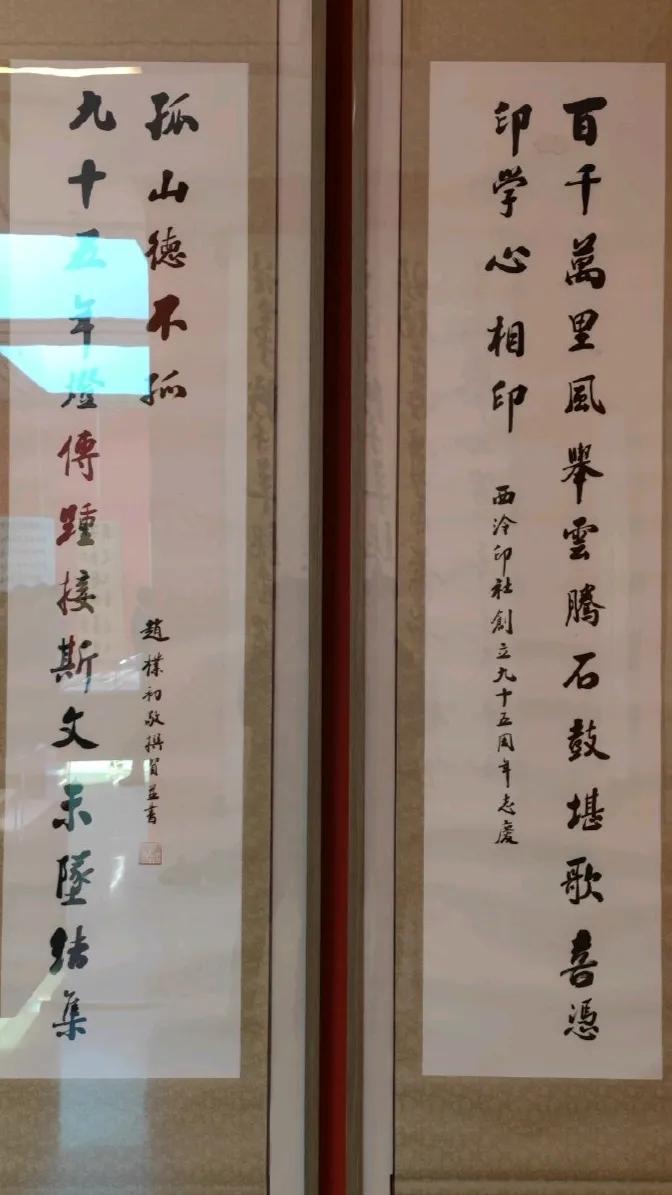 百千萬里風舉雲騰石鼓堪歌喜憑
印學心相印
西泠印社創立九十五周年志慶
孤山德不孤
九十五年燈傳踵接斯文未墜結集
趙樸初敬撰賀並書